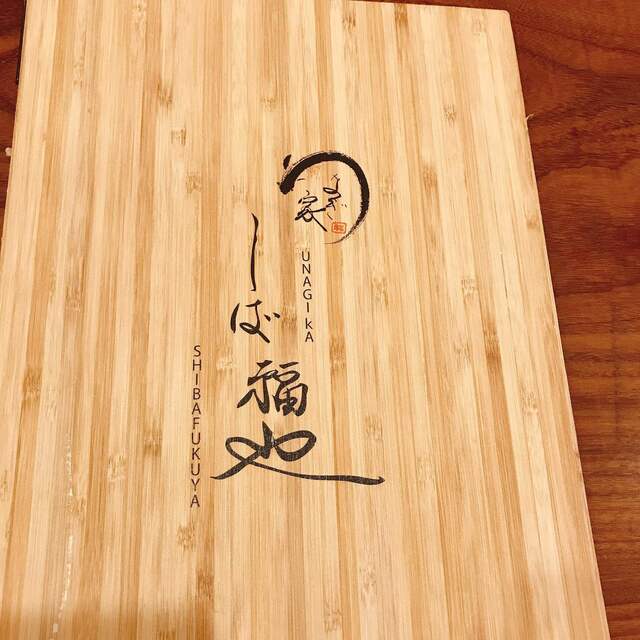 うなぎ家
UNAGI kA
しば福也
SHIBAFUKUYA